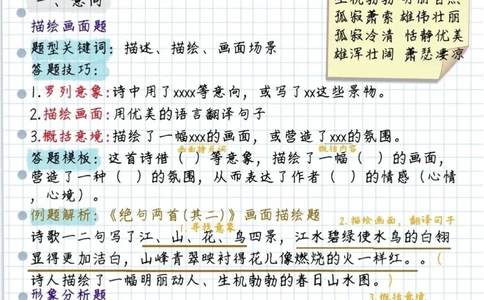 一、意向
生机勃勃 明丽自然
孤寂萧索 雄伟壮丽
孤寂冷清 恬静优美
雄浑壮阔 萧瑟凄凉
描绘画面题
题型关键词：描述、描绘、画面场景
答题技巧：
1.罗列意象：诗中用了xxxx等意向，或写了xx这些景物。
2.描绘画面：用优美的语言翻译句子
3.概括意境：描绘了一幅xxx的画面，或营造了xxx的氛围。
画面特点词 概括内容
答题模板：这首诗借（ ）等意象，描绘了一幅（ ）的画面，
营造了一种（ ）的氛围，从而表达了作者（ ）的情感（心情
，心境）。
例题解析：《绝句两首(其二)》画面描绘题
1.寻找意象
2.描绘画面，翻译句子
诗歌一二句写了江、山、花、鸟四景，江水碧绿使水鸟的白翎
显得更加洁白，山峰青翠映衬得花儿像燃烧的火一样红。。（
诗人描绘了一幅明丽动人、生机勃勃的春日山水图。）
3.概括意境
形象分析题